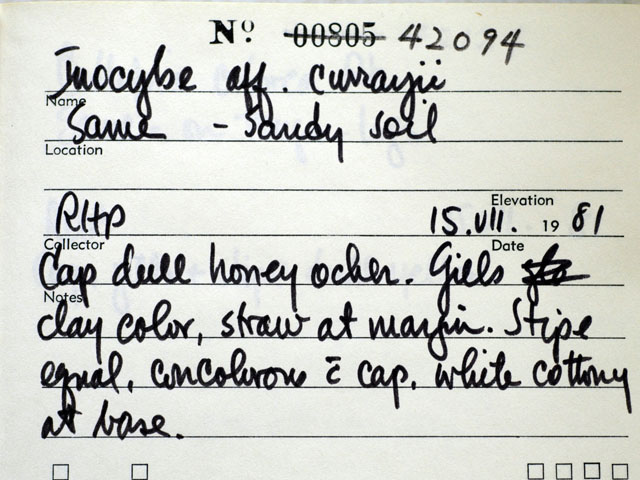 Nº 00805 42094
Inocybe aff. curreyii
Name
Same - Sandy soil
Location
Elevation
RHP 15.VII. 19 81
Collector Date
Cap dull honey ocher. Gills
Notes
clay color, straw at margin. Stipe
equal, concolorous c̄ cap, white cottony
at base.